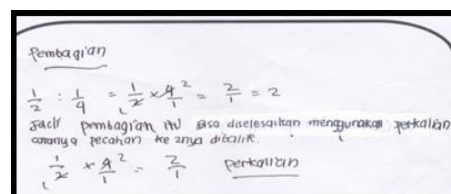 Pembagian
1/2 : 1/4 = 1/2 x 4/1 2 = 2/1 = 2
Jadi pembagian itu bisa diselesaikan menggunakan perkalian
caranya pecahan ke 2nya dibalik.
1/2 x 4/1 2 = 2/1 perkalian